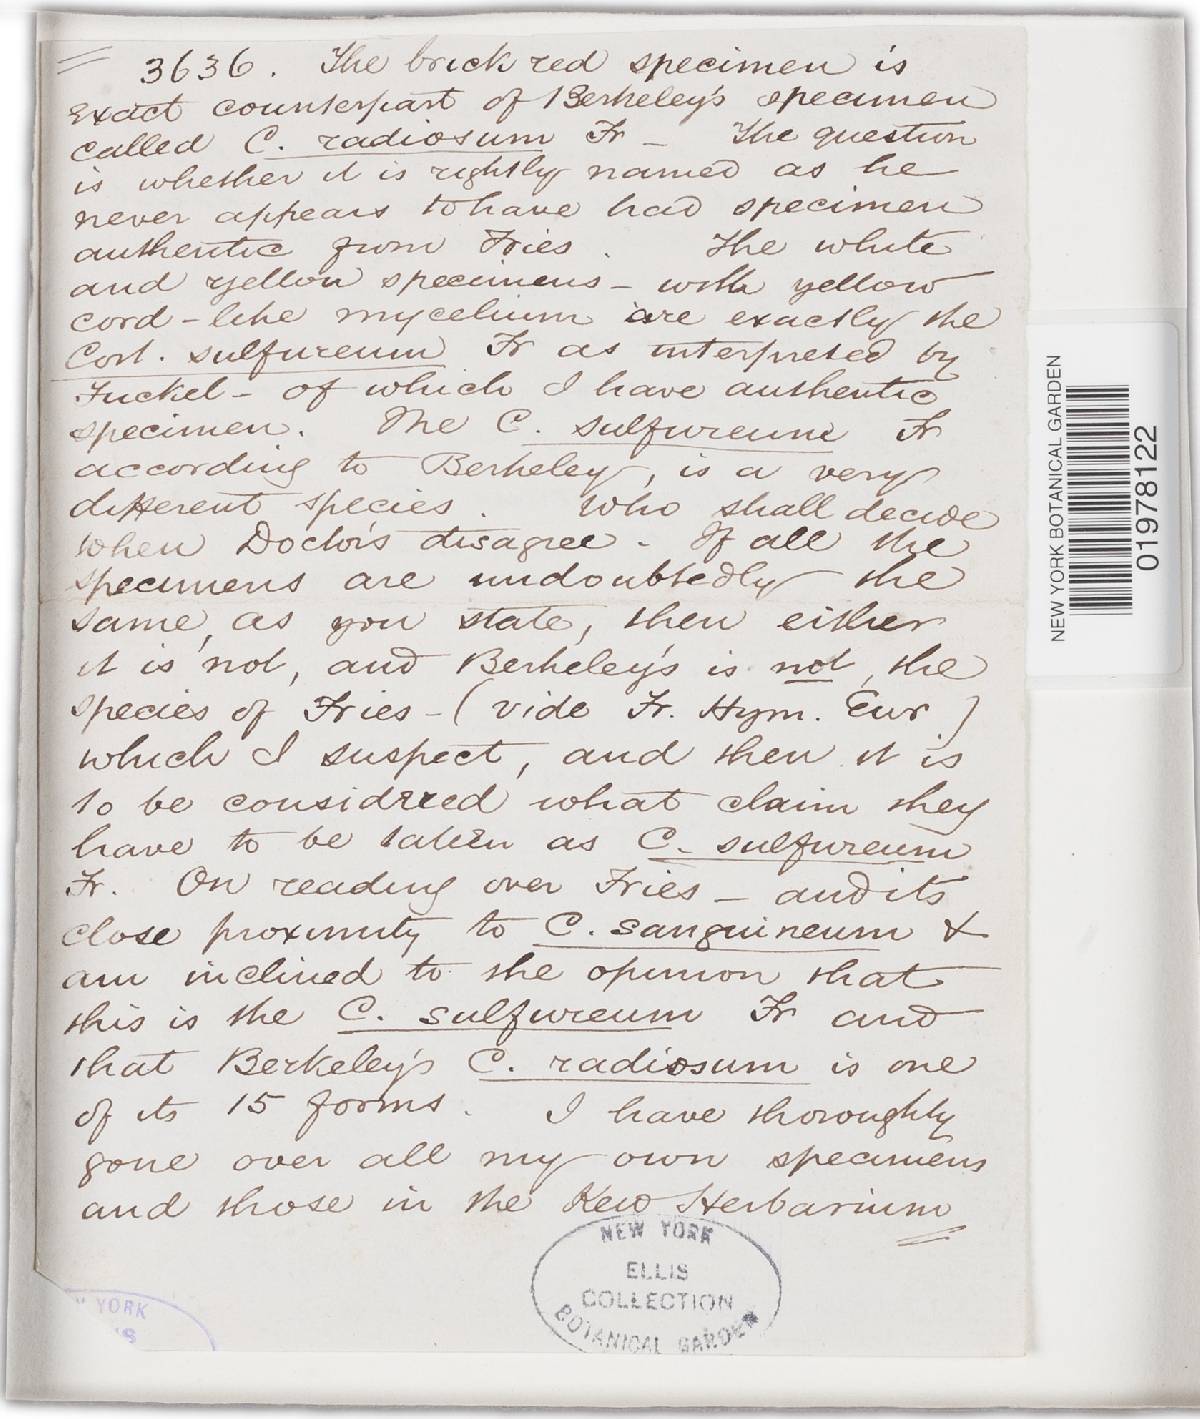 3636. The brick red specimen is
exact counterpart of Berkeley's specimen
called C. radiosum Fr - The question
is whether it is rightly named as he
never appears to have had specimen
authentic from Fries. The white
and yellow specimens - with yellow
cord-like mycelium are exactly the
Cort. sulfureum Fr as interpreted by
Fuckel - of which I have authentic
specimen. The C. sulfureum Fr
according to Berkeley, is a very
different species. Who shall decide
when Doctors disagree - If all the
specimens are undoubtedly the
same, as you state, then either
it is not, and Berkeley's is not, the
species of Fries - (vide Fr. Hym. Eur)
which I suspect, and then it is
to be considered what claim they
have to be taken as C. sulfureum
Fr. On reading over Fries - and its
close proximity to C. sanguineum &
am inclined to the opinion that
this is the C. sulfureum Fr and
that Berkeley's C. radiosum is one
of its 15 forms. I have thoroughly
gone over all my own specimens
and those in the Kew Herbarium
NEW YORK
ELLIS
COLLECTION
BOTANICAL GARDEN
YORK
NEW YORK BOTANICAL GARDEN
01978122